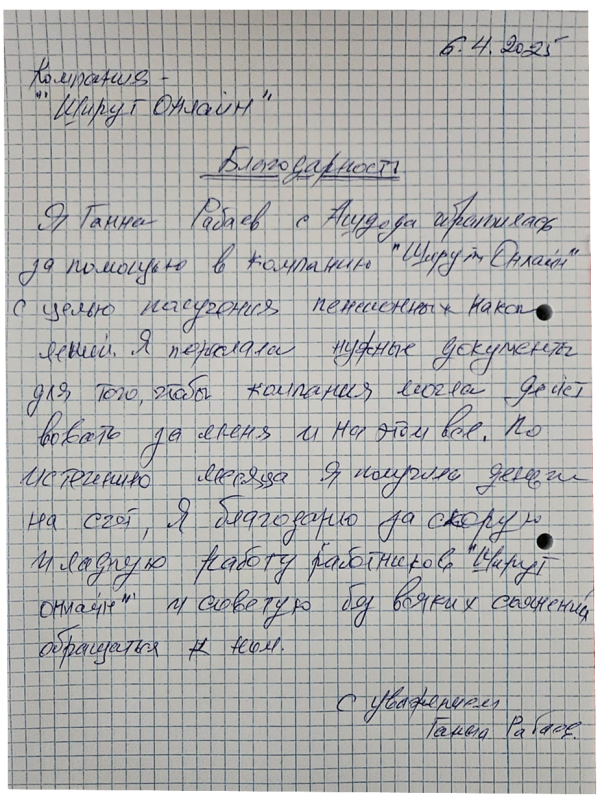 6.4.2025
Компания -
"Ширут Онлайн"
Благодарность
Я Ганна Рабаев с Ашдода обратилась
за помощью в компанию "Ширут Онлайн"
с целью получения пенсионных накоп
лений. Я переслала нужные документы
для того, чтобы компания могла дейст
вовать за меня и на этом все. По
истечению месяца я получила деньги
на счёт, Я благодарю за скорую
и ладную работу работников "Ширут
онлайн" и советую без всяких сомнений
обращаться к ним.
С уважением
Ганна Рабаев.